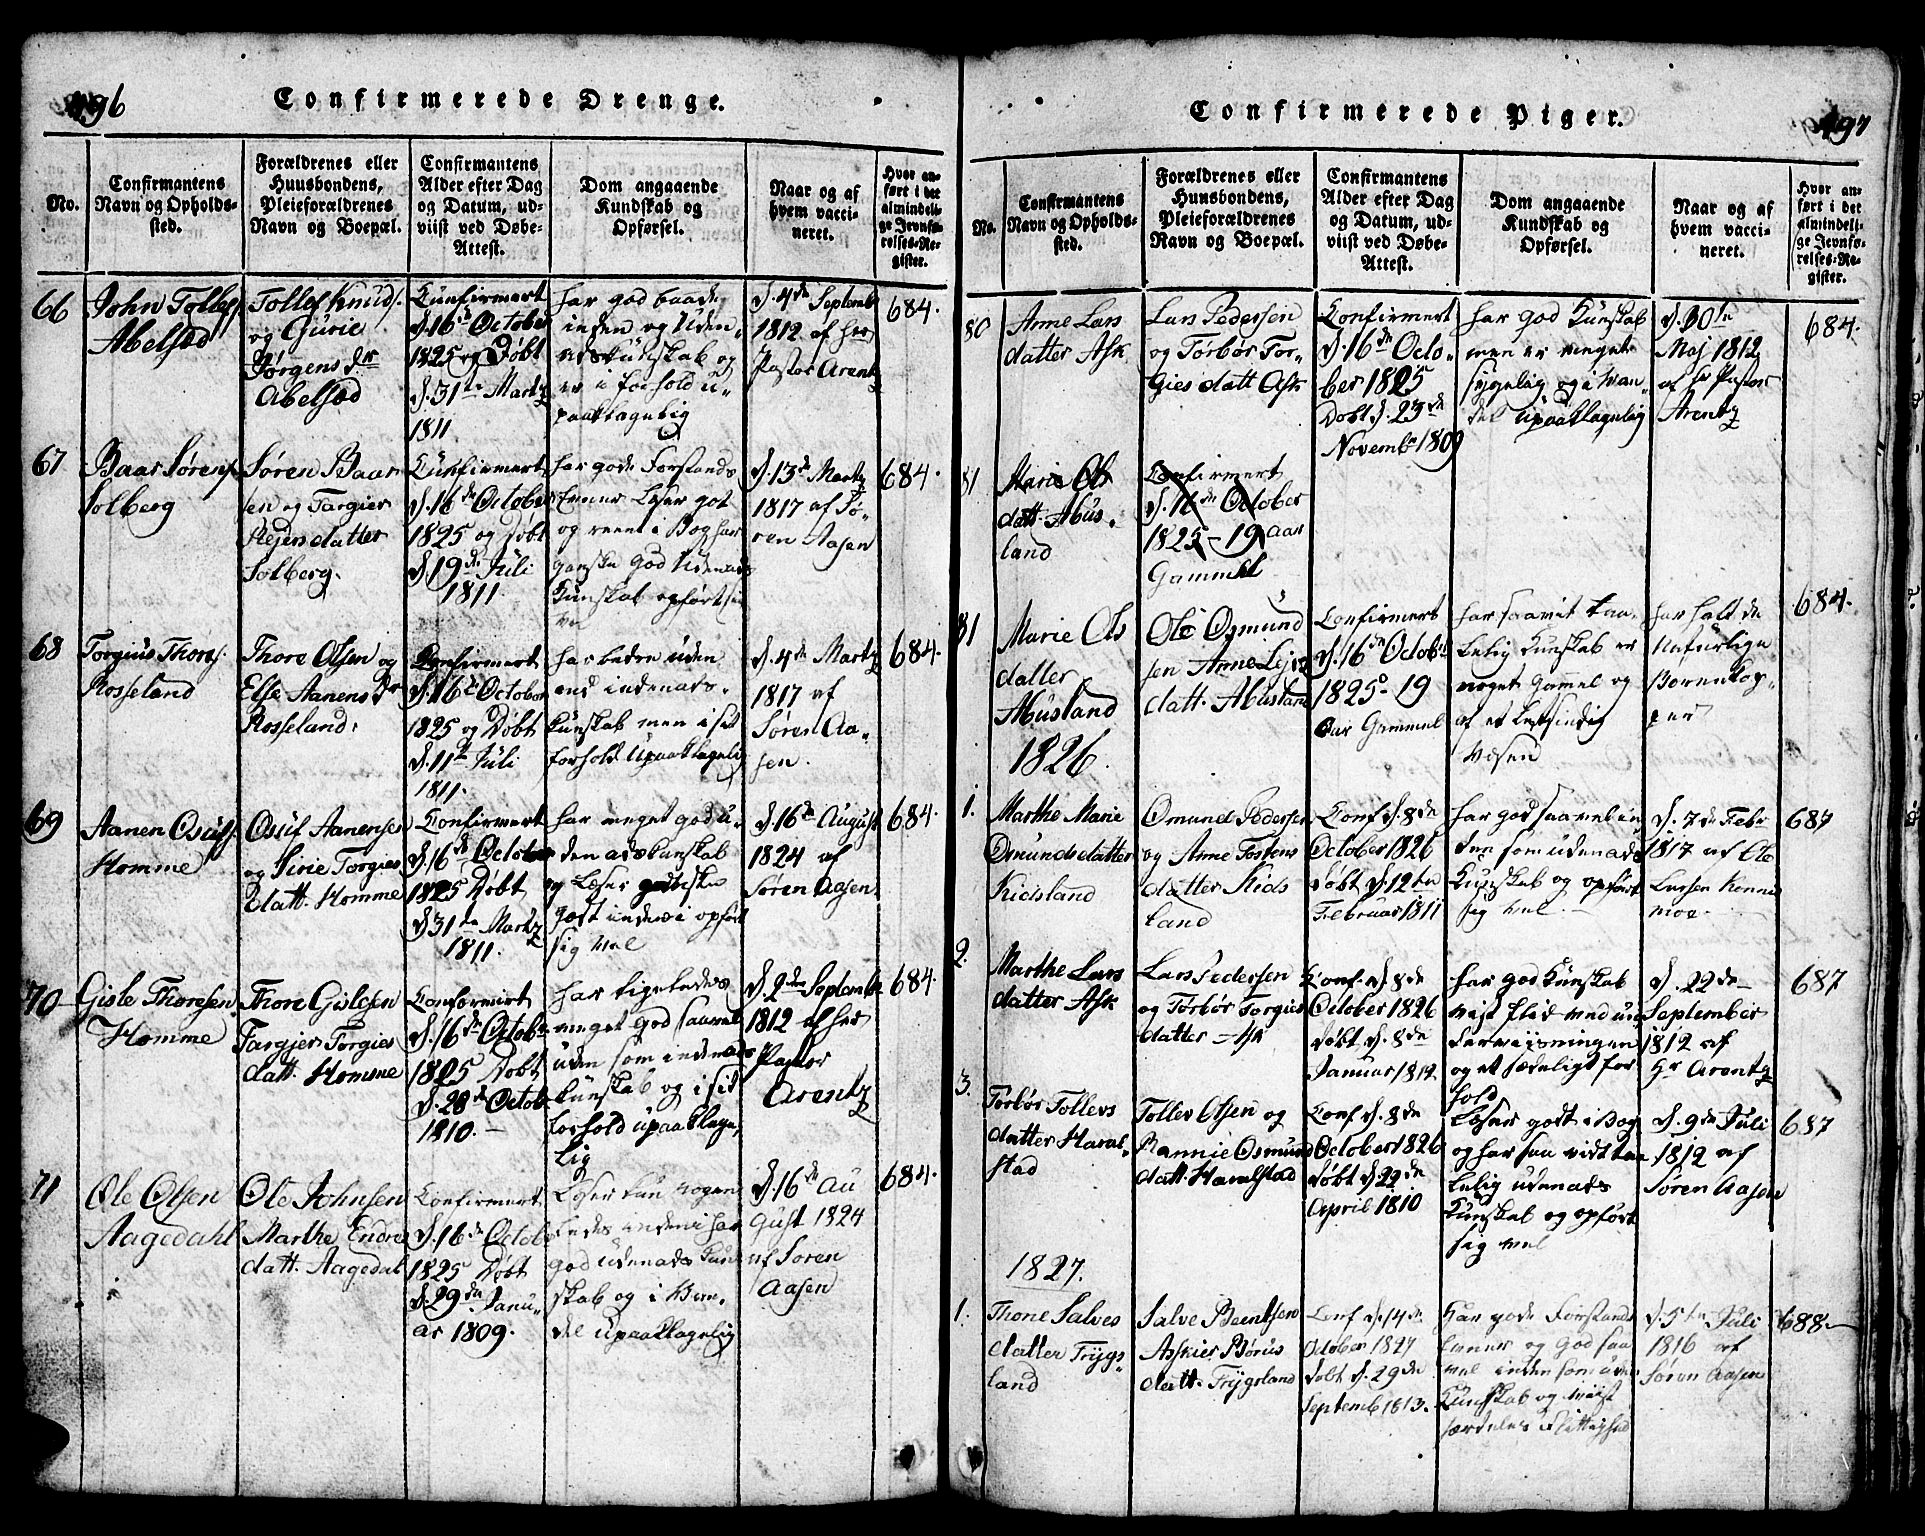 496
Confirmerede Drenge.
No.
Confirmantens
Navn og Opholds-
sted.
Forældrenes eller
Huusbondens,
Pleieforældrenes
Navn og Boepæl.
Confirmantens
Alder efter Dag
og Datum, ud-
viist ved Døbe-
Attest.
Dom angaaende
Kundskab og
Opførsel.
Naar og af
hvem vacci-
neret.
Hvor an-
ført i det
almindeli-
ge Jevnfø-
relses-Re-
gister.
66
John Tollefs.
Abelsæd
Tollef Knuds.
og Gurie
Jørgens dr
Abelsæd
Cunfirmert
d. 16de October
1825 og Døbt
d. 31te Martz
1811.
har god baade
inden og Uden-
ads kunskab og
er i forhold u-
paaklagelig
d. 4de Septemb
1812 af her
Pastor Arentz
684.
67
Baar Sørens.
Solberg
Søren Baar
sen og Targier
Stejensdatter
Solberg.
Cunfirmert
d. 16de October
1825 og Døbt
d. 19de Juli
1811.
har gode Forstands
Evner Læser got
og reent i Bog har
ganske God Udenads
Kunskab opført sig
vel
d. 13de Martz
1817 af Sø-
ren Aasen
684.
68
Torgius Thores.
Rosseland
Thore Olsen og
Else Aanensdr
Rosseland.
Confirmert
d. 16de October
1825 og Døbt
d. 11te Juli
1811.
har bedre uden
end indenads-
kunskab men i sit
forhold Upaaklagelig
d. 4de Martz
1817 af
Søren Aa-
sen.
684.
69
Aanen Osulfs.
Homme
Osuf Aanensen
og Sirie Torgies
datt. Homme
Confirmert
d. 16de October
1825 Døbt
d. 31te Martz
1811.
har meget god u-
den ads kunskab
og Læser
inden i opført
sig vel
d. 16de August
1824 af
Søren Aasen
684.
70
Gisle Thoresen
Homme
Thore Gislesen
Targjer Torgies
datt. Homme
Confirmert
d. 16de Octob
1825 Døbt
d. 28de Octob
1810.
har ligeledes
meget God saavel
uden som indenads
kunskab og i sit
forhold upaaklage-
lig
d. 2den Septemb
1812 af her
Pastor
Arentz
684.
71
Ole Olsen
Aagedahl
Ole Johnsen
Marthe Endre
datt. Aagedal
Confirmert
d. 16de Octob
1825 Døbt
d. 29de Janu-
ar 1809.
Læser kun nogen
ledes indeni har
god udenads Kund
skab og i Van-
del upaaklagelig
d. 16de Au
gust 1824
af Søren
Aasen
684.
Confirmerede Piger.
497
No.
Confirmantens
Navn og Opholds-
sted.
Forældrenes eller
Huusbondens,
Pleieforældrenes
Navn og Boepæl.
Confirmantens
Alder efter Dag
og Datum, ud-
viist ved Døbe-
Attest.
Dom angaaende
Kundskab og
Opførsel.
Naar og af
hvem vacci-
neret.
Hvor an-
ført i det
almindeli-
ge Jevnfø-
relses-Re-
gister.
80
Anne Lars
datter Ask
Lars Pedersen
og Torbør Tor-
gies datt Ask
Confirmert
d. 16de Octo-
ber 1825
Døbt d. 23de
Novembr 1809
har god Kunskab
men er meget
sygelig og i Van-
del Upaaklagelig
d. 30te
Maj 1812
af hr Pastor
Arentz
684.
81
Marie Ols
datt. Abus-
land
Confirmert
d. 16de October
1825 - 19 aar
Gammel
81
Marie Ols
datter
Abusland
Ole Osmund
sen Anne Lejs
datt. Abusland
Confirmert
d. 16de Octobr
1825 - 19
aar Gammel
har saavit taa-
lelig Kunskab er
noget Gammel og
af et Letsindig
Væsen
har haft de
Naturlige
Børenkop-
per
684.
1826.
1.
Marthe Marie
Omundsdatter
Kidsland
Omund Pedersen
og Anne Tostens
datter Kids
land
Conf d. 8de
October 1826
døbt d. 12te
Februar 1811
har god saavel in
den som udenads
Kunskab og opført
sig vel.
d. 7de Febr
1817 af Ole
Larsen Kenne
moe.
687
2.
Marthe Lars
datter Ask
Lars Pedersen
og Torbør Torgius
datter - Ask
Conf. d. 8de
October 1826
døbt d. 8de
Januar 1812.
har god Kunskab
viist flid ved un
derviisningen
og et sædeligt for
hold
d. 22de
September
1812 af
Hr Arentz
687
3.
Torbør Tollevs
datter Haval-
stad
Tollev Olsen og
Rannie Osmund
datt. Havalstad
Conf d. 8de
October 1826
døbt d. 22de
April 1810
Læser godt i Bog
og har saa vidt taa
lelig udenads
Kunskab og opført
sig vel
d. 9de Juli
1812 af
Søren Aasen
687
1827.
1.
Thone Salves
datter Trygs-
land
Salve Beentsen
Asskier Børus
datt. Trygsland
Conf d. 14de
October 1827
døbt d. 29de
Septemb 1813.
Har gode Forstands
Evner og God saa
vel inden som uden
Kunskab og viist
særdeles Flittighed
d. 5te Juli
1816 af
Søren Aasen
688.